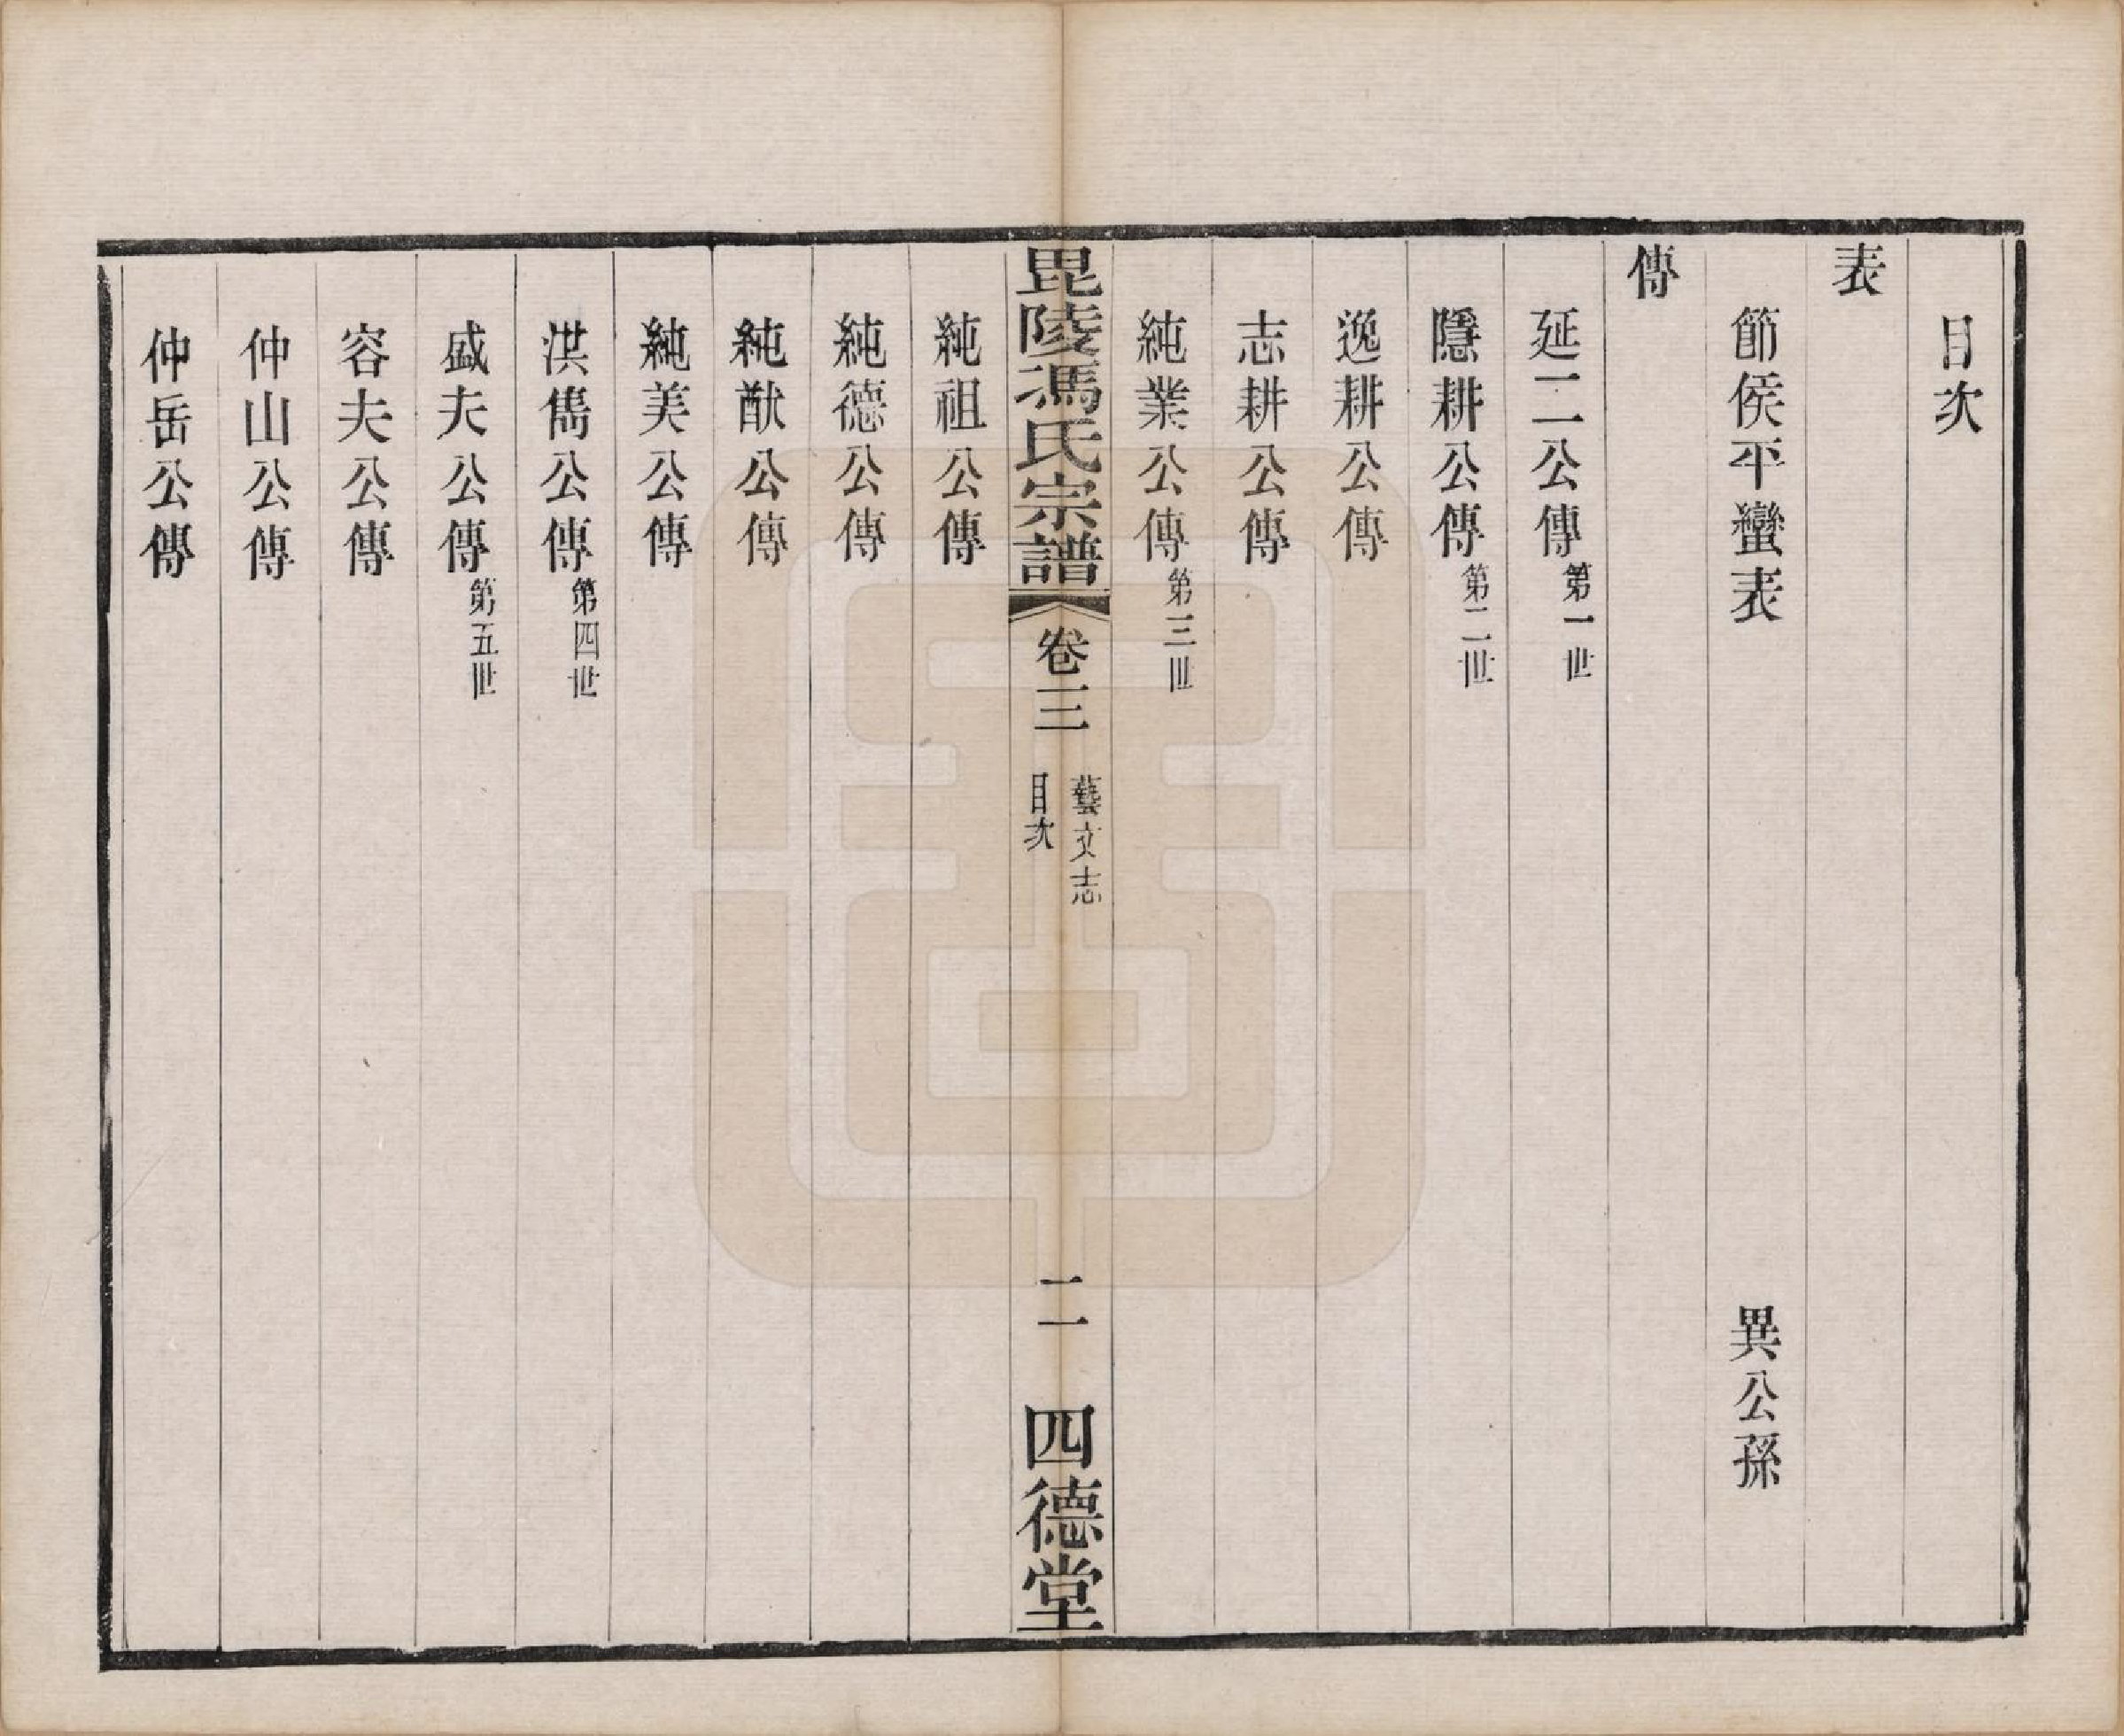 目次
表
節侯平蠻表 異公孫
傳
延二公傳第一世
隱耕公傳第二世
逸耕公傳
志耕公傳
純業公傳第三世
毘陵馮氏宗譜 卷三 藝文志 目次 二 四德堂
純祖公傳
純德公傳
純猷公傳
純美公傳
洪雋公傳第四世
盛夫公傳第五世
容夫公傳
仲山公傳
仲岳公傳